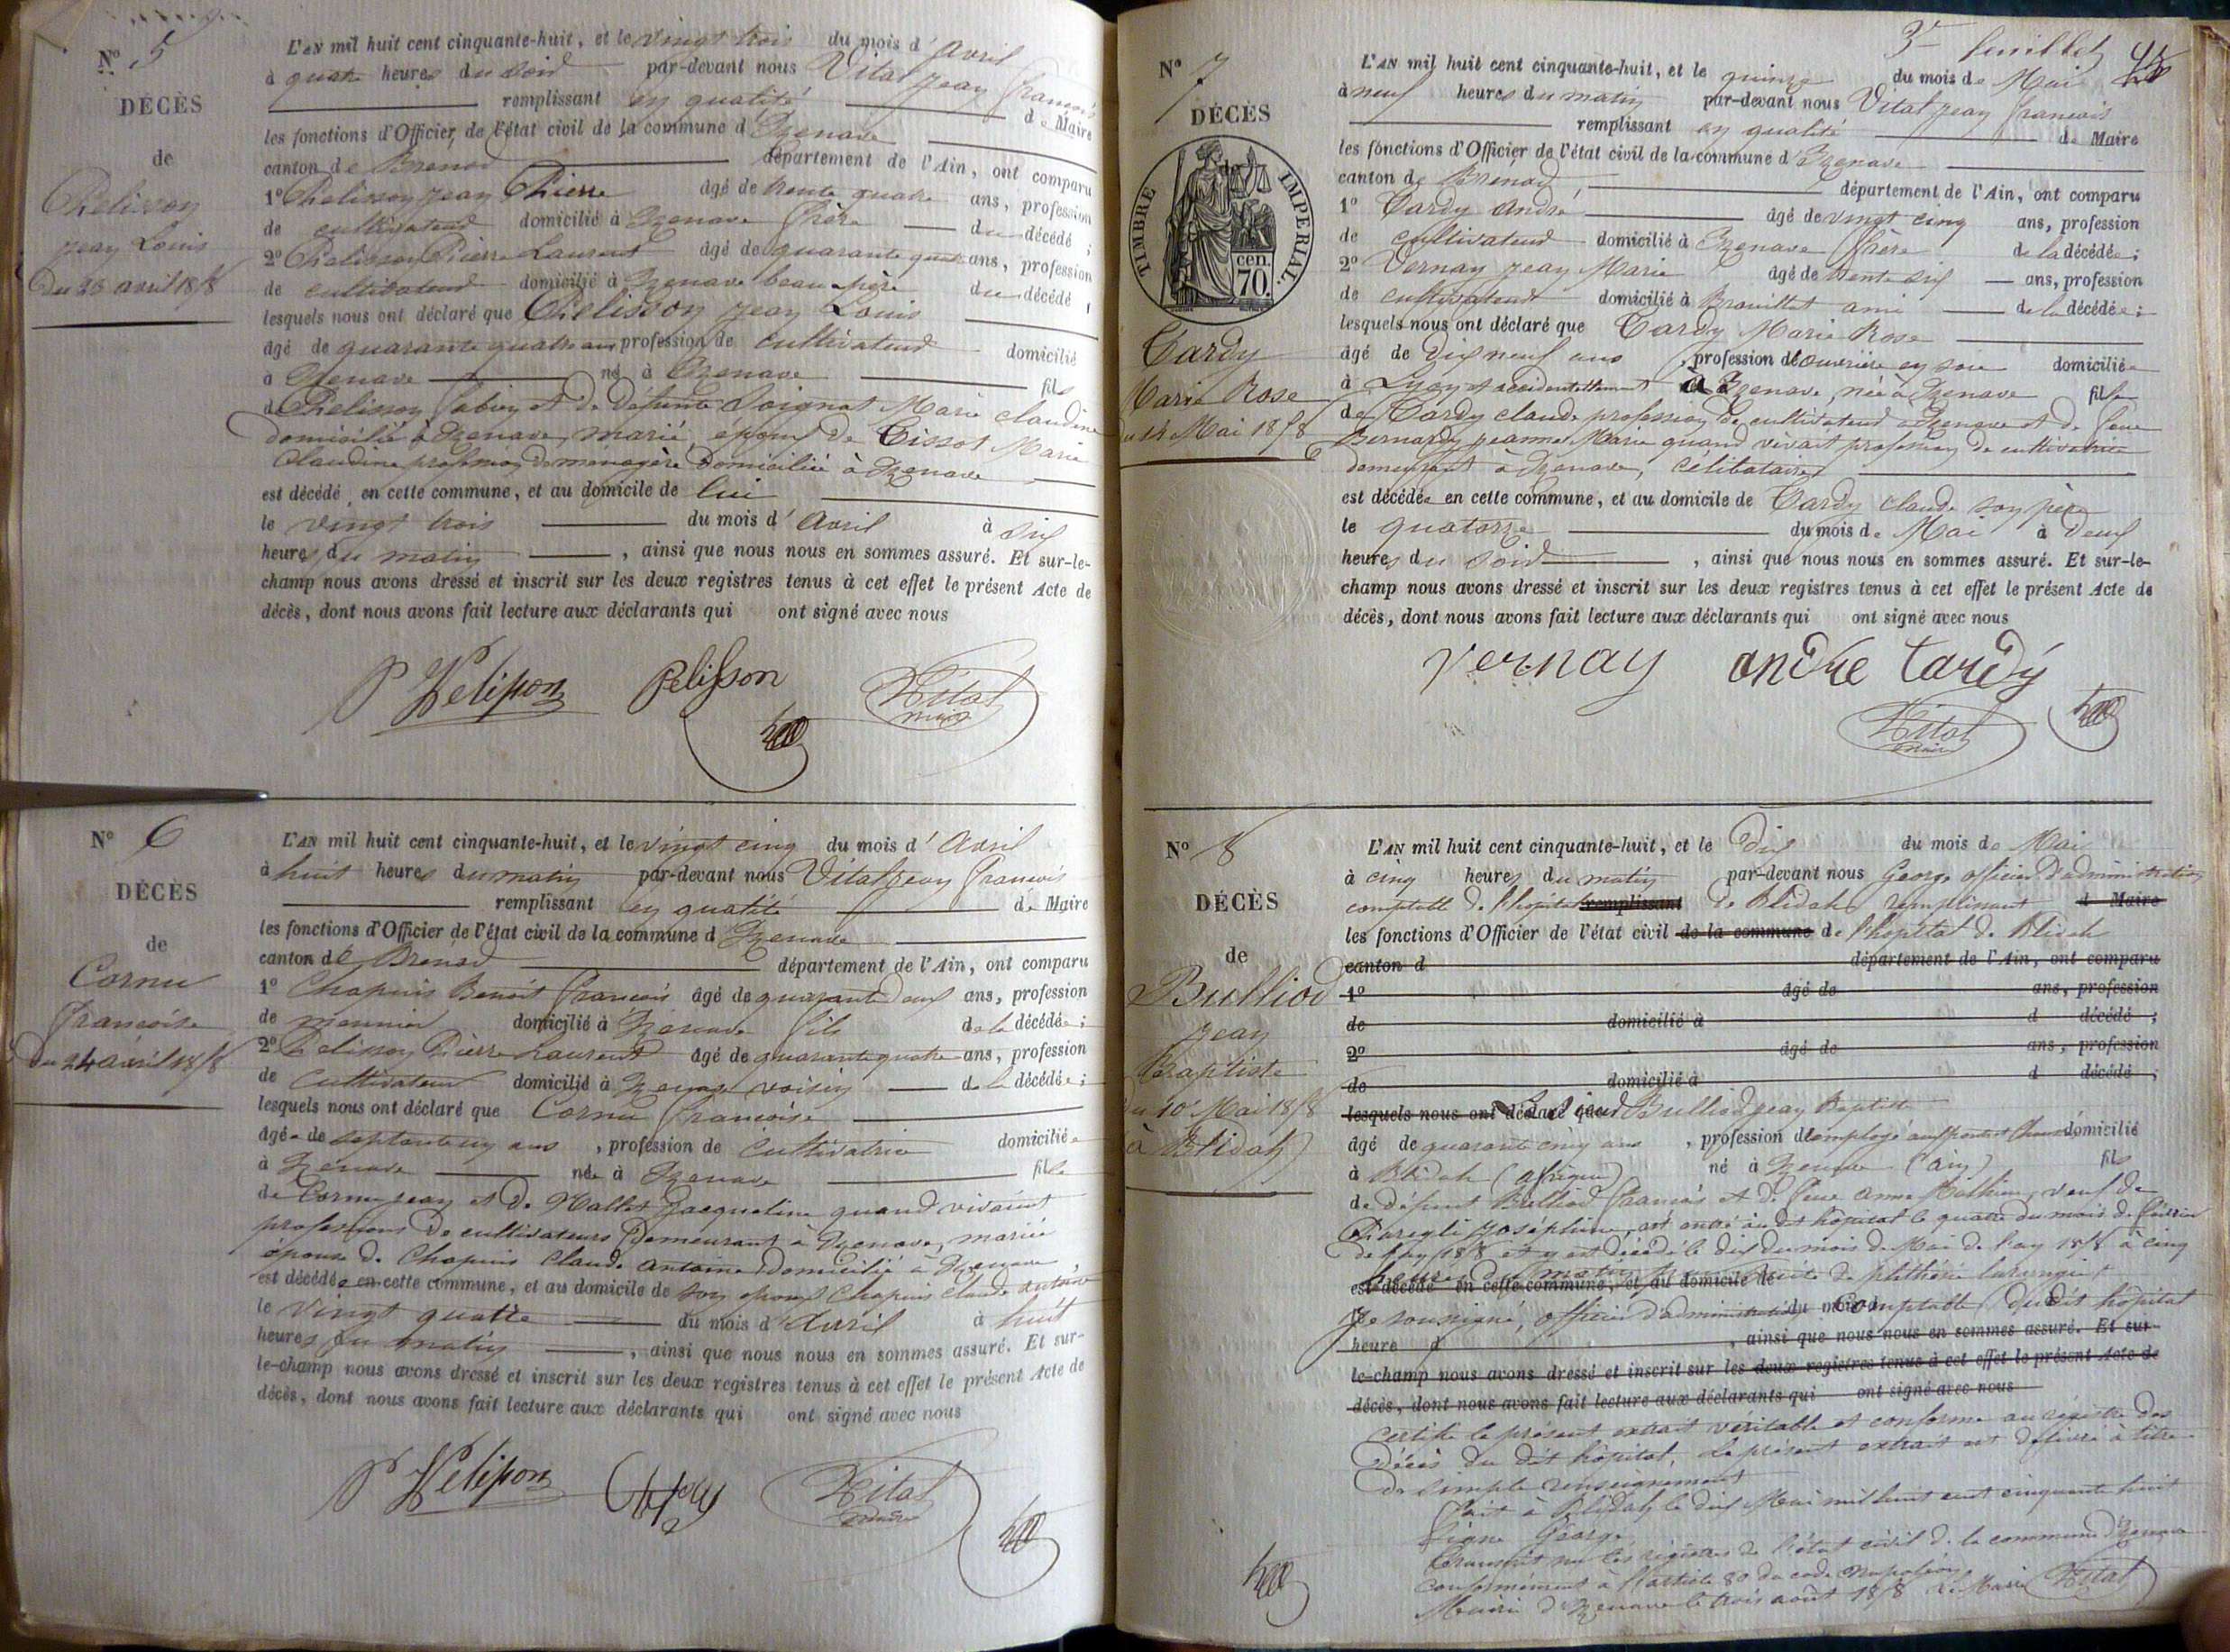 N° 5
DÉCÈS
de
Pelisson
Jean Louis
du 23 avril 1858
L'AN mil huit cent cinquante-huit, et le vingt trois du mois d'avril
à quatre heures du soir par-devant nous Vital Jean François
remplissant en qualité de Maire
les fonctions d'Officier de l'état civil de la commune d'Izenave
canton de Brenod département de l'Ain, ont comparu
1° Pelisson Jean Pierre âgé de trente quatre ans, profession
de cultivateur domicilié à Izenave frère du décédé ;
2° Pelisson Pierre Laurent âgé de quarante quatre ans, profession
de cultivateur domicilié à Izenave beau père du décédé ,
lesquels nous ont déclaré que Pelisson Jean Louis
âgé de quarante quatre ans profession de cultivateur domicilié
à Izenave né à Izenave fils
de Pelisson Fabien et de défunte Soignat Marie Claudine
domicilié à Izenave, marié, époux de Tissot Marie
Claudine profession de ménagère domiciliée à Izenave
est décédé en cette commune, et au domicile de lui
le vingt trois du mois d'Avril à six
heures du matin , ainsi que nous nous en sommes assuré. Et sur-le-
champ nous avons dressé et inscrit sur les deux registres tenus à cet effet le présent Acte de
décès, dont nous avons fait lecture aux déclarants qui ont signé avec nous
P Pelisson Pelisson Vital
maire
N° 6
DÉCÈS
de
Cornu
Françoise
du 24 avril 1858
L'AN mil huit cent cinquante-huit, et le vingt cinq du mois d'Avril
à huit heures du matin par-devant nous Vital Jean François
remplissant en qualité de Maire
les fonctions d'Officier de l'état civil de la commune d Izenave
canton de Brenod département de l'Ain, ont comparu
1° Chapuis Benoit François âgé de quarante deux ans, profession
de meunier domicilié à Izenave fils de la décédée ;
2° Pelisson Pierre Laurent âgé de quarante quatre ans, profession
de cultivateur domicilié à Izenave voisin de la décédée ;
lesquels nous ont déclaré que Cornu Françoise
âgée de septante un ans , profession de cultivatrice domiciliée
à Izenave née à Izenave fille
de Cornu Jean et de Mallet Jacqueline quand vivaient
professions de cultivateurs demeurant à Izenave, mariée
épouse de Chapuis Claude Antoine domicilié à Izenave,
est décédée en cette commune, et au domicile de son époux Chapuis Claude Antoine
le vingt quatre du mois d'Avril à huit
heures du matin , ainsi que nous nous en sommes assuré. Et sur-
le-champ nous avons dressé et inscrit sur les deux registres tenus à cet effet le présent Acte de
décès, dont nous avons fait lecture aux déclarants qui ont signé avec nous
P Pelisson Vital
maire
3e feuillet
N° 7
DÉCÈS
TIMBRE IMPERIAL.
cen.
70.
Tardy
Marie Rose
du 14 Mai 1858
L'AN mil huit cent cinquante-huit, et le quinze du mois de Mai
à neuf heures du matin par-devant nous Vital Jean François
remplissant en qualité de Maire
les fonctions d'Officier de l'état civil de la commune d'Izenave
canton de Brenod, département de l'Ain, ont comparu
1° Tardy André âgé de vingt cinq ans, profession
de cultivateur domicilié à Izenave frère de la décédée ;
2° Vernay Jean Marie âgé de trente six ans, profession
de cultivateur domicilié à Brouillat ami de la décédée ;
lesquels nous ont déclaré que Tardy Marie Rose
âgé de dix neuf ans , profession d'ouvrière en soie domiciliée
à Lyon et accidentellement à Izenave, née à Izenave fille
de Tardy Claude profession de cultivateur à Izenave et de feue
Bernardy Jeanne Marie quand vivait profession de cultivatrice
demeurant à Izenave, célibataire
est décédée en cette commune, et au domicile de Tardy Claude son père
le quatorze du mois de Mai à deux
heures du soir , ainsi que nous nous en sommes assuré. Et sur-le-
champ nous avons dressé et inscrit sur les deux registres tenus à cet effet le présent Acte de
décès, dont nous avons fait lecture aux déclarants qui ont signé avec nous
vernay andre tardy
Vital
maire
N° 8
DÉCÈS
de
Bulliod
Jean
Baptiste
du 10 Mai 1858
à Blidah
L'AN mil huit cent cinquante-huit, et le dix du mois de Mai
à cinq heures du matin par-devant nous George officier d'administration
comptable de l'hopital remplissant de Blidah remplissant d Maire
les fonctions d'Officier de l'état civil de la commune de l'hopital de Blidah
canton d département de l'Ain, ont comparu
1° âgé de ans, profession
de domicilié à d décédé ;
2° âgé de ans, profession
de domicilié à d décédé ;
lesquels nous ont déclaré que Bulliod Jean Baptiste
âgé de quarante cinq ans , profession d'employé domicilié
à Blidah (Afrique) né à Izenave (ain) fils
de défunt Bulliod François et de feue Anne Milhieu, veuf de
Joséphine, est entré au dit hôpital le quatre du mois de février
de l'an 1858 et y est décédé le dix du mois de Mai de l'an 1858 à cinq
heures du matin par suite de phthisie laryngée
est décédé en cette commune, et au domicile de
Je soussigné, officier d'administration du mois d comptable du dit hôpital
heure d , ainsi que nous nous en sommes assuré. Et sur-
le-champ nous avons dressé et inscrit sur les deux registres tenus à cet effet le présent Acte de
décès, dont nous avons fait lecture aux déclarants qui ont signé avec nous
certifie le présent extrait véritable et conforme au registre des
décès du dit hôpital. Le présent extrait est délivré à titre
de simple renseignement
Fait à Blidah le dix Mai mil huit cent cinquante huit
Signé George
Transcrit sur les registres de l'état civil de la commune d'Izenave
conformément à l'article 80 du code Napoléon
Mairie d'Izenave le trois août 1858 Le Maire Vital